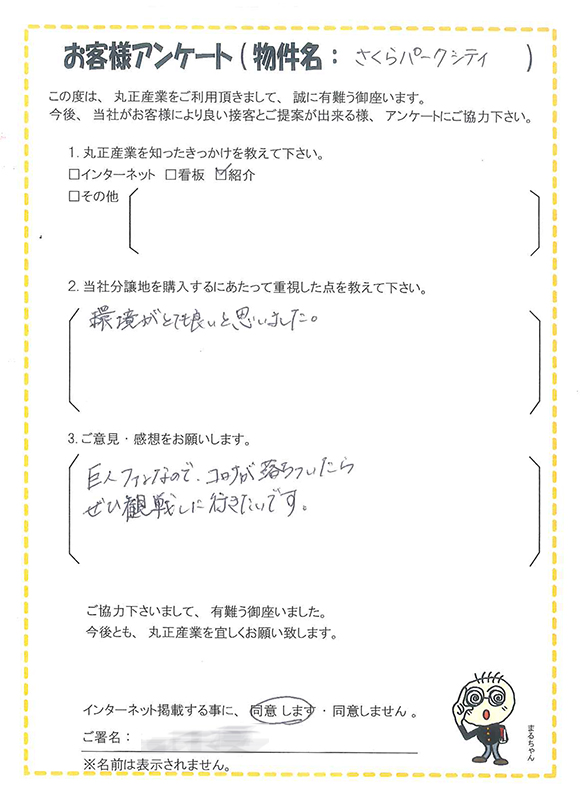 お客様アンケート(物件名：さくらパークシティ)
この度は、丸正産業をご利用頂きまして、誠に有難う御座います。
今後、当社がお客様により良い接客とご提案が出来る様、アンケートにご協力下さい。
1.丸正産業を知ったきっかけを教えて下さい。
□インターネット □看板 ☑紹介
□その他
2.当社分譲地を購入するにあたって重視した点を教えて下さい。
環境がとても良いと思いました。
3.ご意見・感想をお願いします。
巨人ファンなので、コロナが落ちついたら
ぜひ観戦しに行きたいです。
ご協力下さいまして、有難う御座いました。
今後とも、丸正産業を宜しくお願い致します。
インターネット掲載する事に、同意します・同意しません。
ご署名：
※名前は表示されません。
まるちゃん